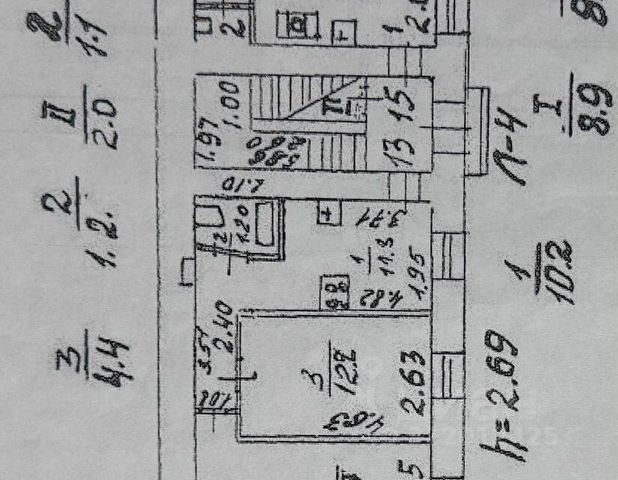 2
1.1
II
2.0
2
1.2.
3
4.4
2
1
2.
1.97
1.00
II
13 15
2.10
2
1.20
3.71
1
11.3
4.82
1.95
3.51
2.40
1.02
3
12.2
4.83
2.63
5
I
8.9
л-4
1
10.2
h=2.69